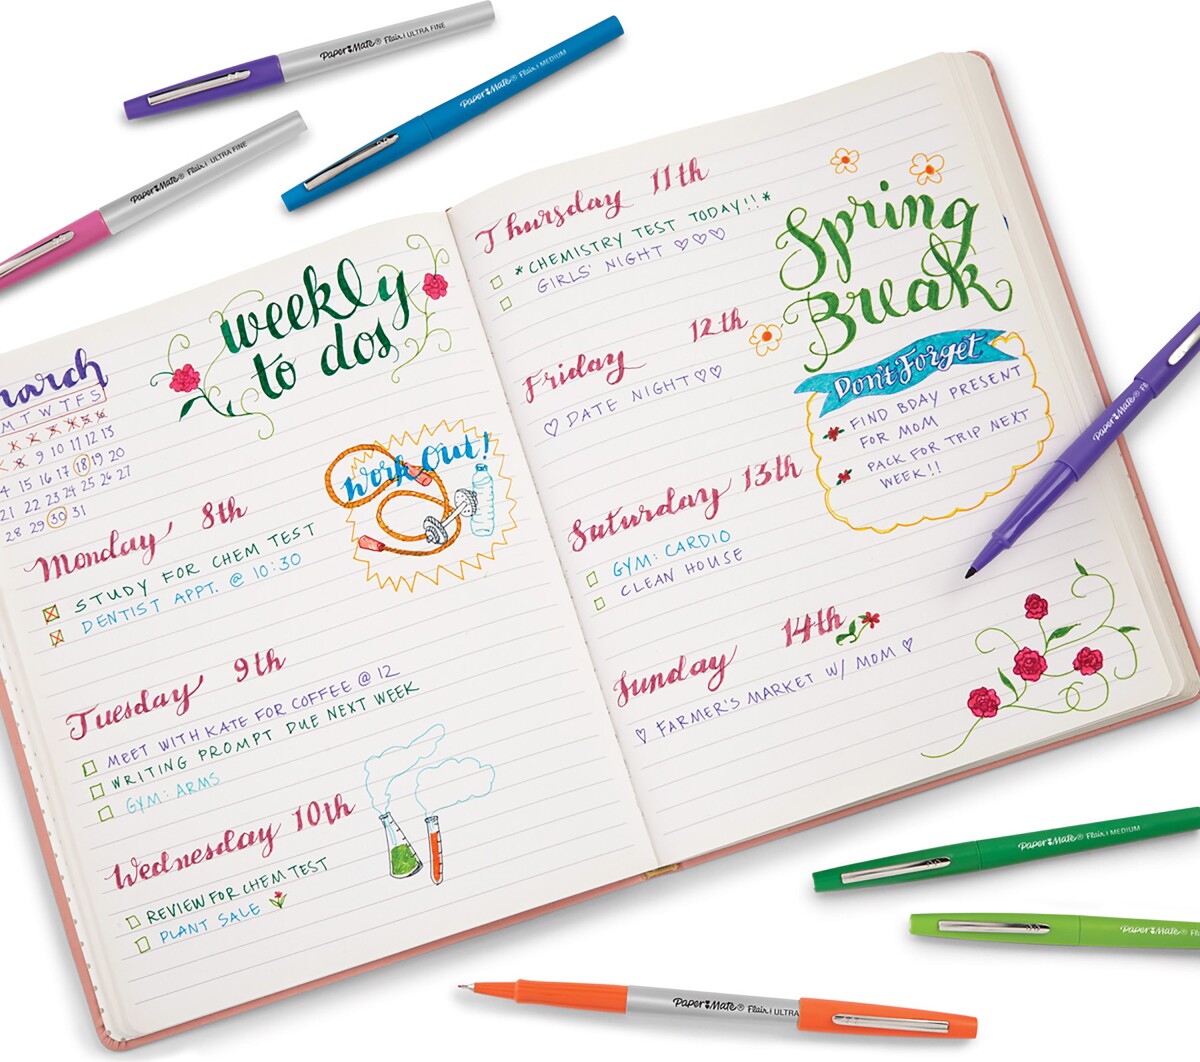 Paper Mate® Flair. | ULTRA FINE
Paper Mate® Flair. | MEDIUM
Paper Mate® Flair. | ULTRA FINE
weekly
to dos
march
M T W T F S
8 9 10 11 12 13
15 16 17 18 19 20
21 22 23 24 25 26 27
28 29 30 31
Work Out!
Monday 8th
STUDY FOR CHEM TEST
DENTIST APPT. @ 10:30
Tuesday 9th
MEET WITH KATE FOR COFFEE @ 12
WRITING PROMPT DUE NEXT WEEK
GYM: ARMS
Wednesday 10th
REVIEW FOR CHEM TEST
PLANT SALE
Thursday 11th
*CHEMISTRY TEST TODAY!!*
GIRLS' NIGHT ♡♡♡
Friday 12th
♡ DATE NIGHT ♡♡
Saturday 13th
GYM: CARDIO
CLEAN HOUSE
Sunday 14th
♡ FARMER'S MARKET W/ MOM ♡
Spring
Break
Don't Forget
FIND BDAY PRESENT
FOR MOM
PACK FOR TRIP NEXT
WEEK!!
Paper Mate®
Paper Mate® Flair. | MEDIUM
Paper Mate®
Paper Mate® Flair. | ULTRA